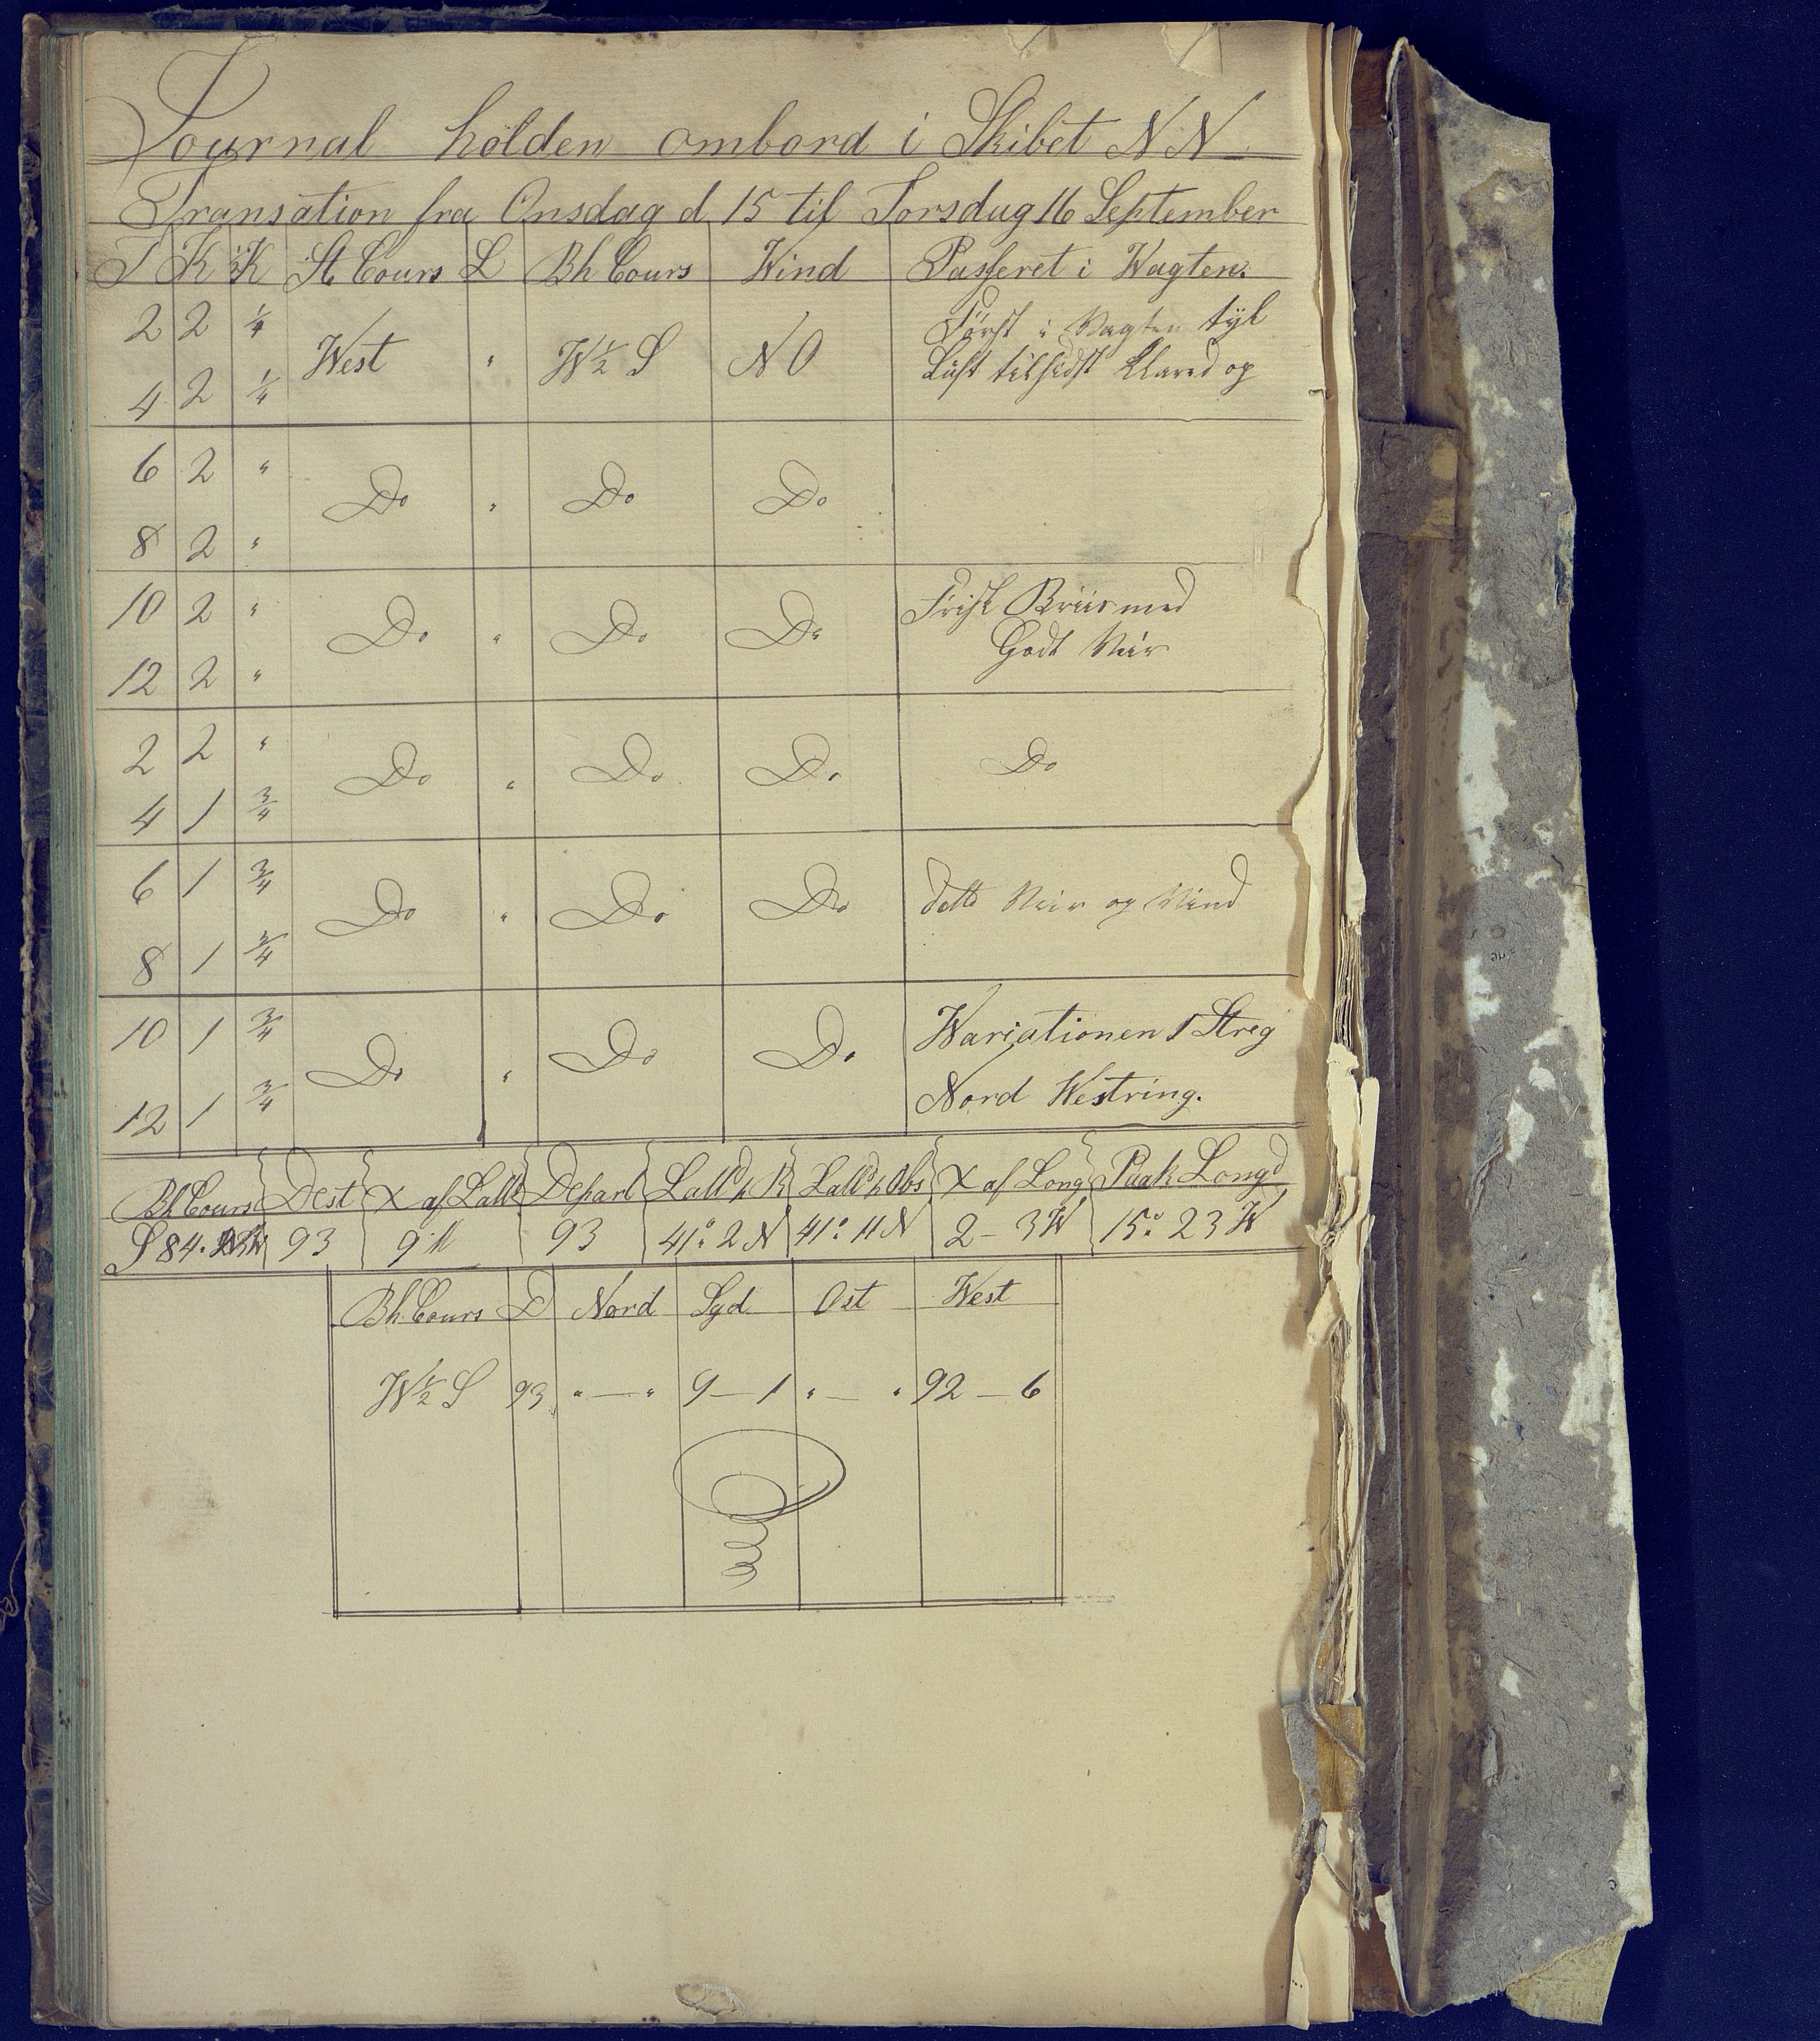 Journal holden ombord i Skibet N N
Transation fra Onsdag d 15 til Torsdag 16 September
T K ½K St Cours L Bh Cours Wind Passeret i Wagten.
2 2 ¼ Først i Vagten tyk
West " W½ S N O Luft tilsidst klared op
4 2 ¼
6 2 "
Do " Do Do
8 2 "
10 2 " Frisk Briis med
Do " Do Do Godt Veir
12 2 "
2 2 "
Do " Do Do Do
4 1 ¾
6 1 ¾
Do " Do Do dette Veir og Vind
8 1 ¾
10 1 ¾ Wariationen 1 Streg
Do " Do Do
12 1 ¾ Nord Westring.
Bh Cours Dest X af Latt Depart Lattd p R Lattd p Obs X af Long Paak Longd
S 84. W 93 9 M 93 41° 2 N 41° 11 N 2 - 3 W 15° 23 W
Bh. Cours D Nord Syd Ost West
W½ S 93 " — " 9 — 1 " — " 92 — 6